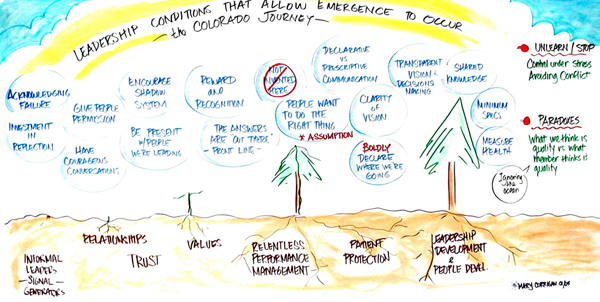 LEADERSHIP CONDITIONS THAT ALLOW EMERGENCE TO OCCUR
— the COLORADO JOURNEY —
ACKNOWLEDGING
FAILURE
INVESTMENT
IN
REFLECTION
GIVE PEOPLE
PERMISSION
HAVE
COURAGEOUS
CONVERSATIONS
ENCOURAGE
SHADOW
SYSTEM
BE PRESENT
W/PEOPLE
WE'RE LEADING
REWARD
and
RECOGNITION
THE ANSWERS
ARE OUT THERE
- FRONT LINE -
NOT
INVENTED
HERE
PEOPLE WANT
TO DO THE
RIGHT THING
* ASSUMPTION
DECLARATIVE
VS
PRESCRIPTIVE
COMMUNICATION
CLARITY
OF
VISION
BOLDLY
DECLARE
WHERE WE'RE
GOING
TRANSPARENT
VISION &
DECISIONS
MAKING
SHARED
KNOWLEDGE
MINIMUM
SPECS
MEASURE
HEALTH
Ignoring
the
ocean
UNLEARN / STOP
Control under stress
Avoiding Conflict
PARADOXES
What we think is
quality vs. what
member thinks is
quality
INFORMAL
LEADERS
— SIGNAL —
GENERATORS
RELATIONSHIPS
TRUST
VALUES
RELENTLESS
PERFORMANCE
MANAGEMENT
PATIENT
PROTECTION
LEADERSHIP
DEVELOPMENT
&
PEOPLE DEVEL.
MARY CORRIGAN